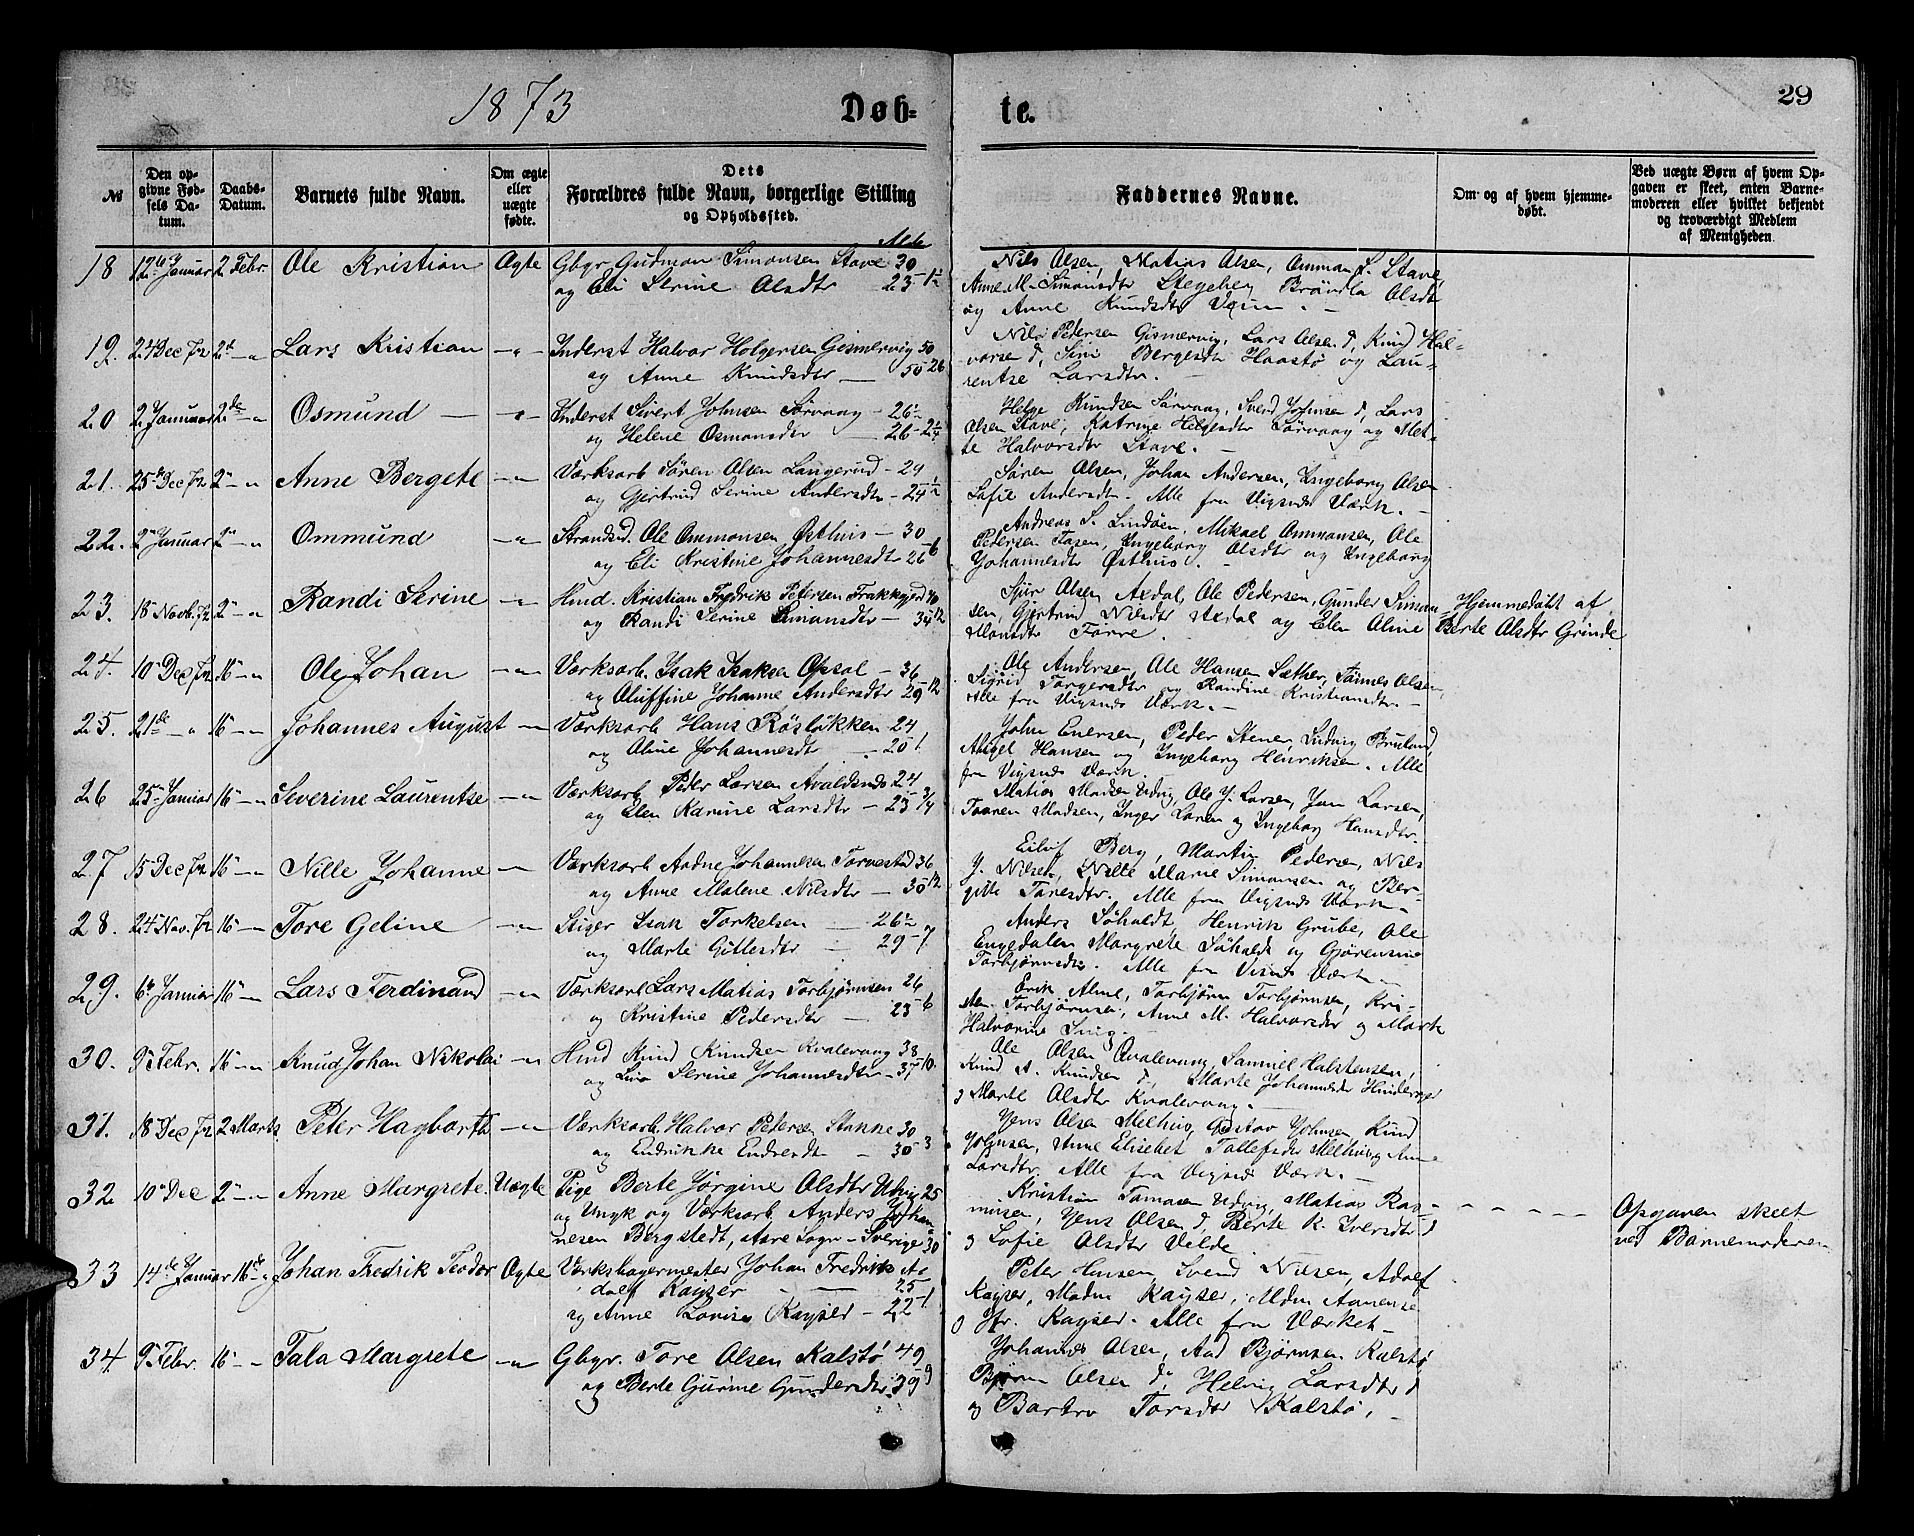 1873 Døb- te. 29
№
Den opgivne Fødsels Datum.
Daabs-Datum.
Barnets fulde Navn.
Om ægte eller uægte fødte.
Dets Forældres fulde Navn, borgerlige Stilling og Opholdssted.
Faddernes Navne.
Om- og af hvem hjemmedøbt.
Ved uægte Børn af hvem Opgaven er skeet, enten Barnemoderen eller hvilket bekjendt og troværdigt Medlem af Menigheden.
18 12te Januar 2 Febr. Ole Kristian Ægte Gbgr. Gudman Simonsen Stave 30
og Eli Serine Olsdtr 25
Nils Olsen, Matias Olsen, Omman S. Stave,
Anne M. Simonsdtr Stegeberg Brönla Olsdtr
og Anne Knudsdtr
19. 24 Dec 72 2d Lars Kristian Inderst Halvor Holgersen Gismervig 50
og Anne Knudsdtr 50
Nils Pedersen Gismervig, Lars Olsen d, Knud Hal-
vorsen d, Siri Bergesdtr Haastø og Lau-
rentse Larsdtr.
20 2 Januar 2de Osmund Inderst Sivert Johnsen Sørvaag 26
og Helene Osmonsdtr 26
Helge Knudsen Sørvaag, Svend Johnsen d, Lars
Olsen Stave, Katrine Helgesdtr Sørvaag og Met-
te Halvorsdtr Stave.
21. 25de Dec 72 2 Anne Bergete Værksarb. Sören Olsen Langerud 29
og Gjertrud Serine Andersdtr 24
Sören Olsen, Johan Andersen, Ingeborg Olsen
Sofie Andersdtr. Alle fra Vigsnes Værk.
22. 2 Januar 2 Ommund Strandsd. Ole Ommonsen Østhus 30
og Eli Kristine Johannesdtr 26
Andreas S. Lindöen, Mikael Ommonsen, Ole
Pedersen Ingeborg Olsdtr og Ingeborg
Johannesdtr Østhus.
23. 18 Novb. 72 2 Randi Serine Hmd. Kristian Fredrik Petersen Frakkagjerd 40
og Randi Serine Simonsdtr 34
Sjur Olsen Axdal, Ole Pedersen, Gunder Simon-
sen, Gjertrud Nilsdtr Axdal og Elen Oline
Monsdtr Förre.
Hjemmedøbt af
Berte Olsdtr Grinde
24. 10 Dec 72 16 Ole Johan Værksarb. Isak Isaksen Opsal 36
og Oluffine Johanne Andersdtr 29
Ole Andersen, Ole Hansen Sæther, Tönnes Olsen,
Sigrid Torgersdtr og Randine Kristiansdtr.
Alle fra Vigsnes Værk.
25. 21de 16 Johannes August Værksarb Hans Röslökken 24
og Oline Johannesdtr 20
John Enersen, Peder Stener, Ludvig Bruland,
Abigel Hansen og Ingeborg Henriksen. Alle
fra Vigsnes Værk.
26 25 Januar 16 Severine Laurentse Værksarb Peder Larsen Avaldsnes 24
og Elen Karine Larsdtr 23
Matias Madsen Udvig, Ole J. Larsen, Jon Larsen,
Taaren Madsen, Inger Larsen og Ingeborg Hansdtr.
27 15 Dec 72 16 Nille Johanne Værksarb Aadne Johannesen Torvestad 36
og Anne Malene Nilsdtr 30
Eiluf Berg, Martin Pedersen, Nils
J. Nilsen, Nille Marie Simonsen og Ber-
gitte Taresdtr. Alle fra Vigsnes Værk.
28. 24 Nov. 72 16 Tore Geline Stiger Isak Torkelsen 26
og Marte Gittlesdtr 29
Anders Söholdt, Henrik Grube, Ole
Engedalen Margrete Söholdt og Gjörensine
Torbjörnsdtr. Alle fra Visnes Værk
29. 6te Januar 16 Lars Ferdinand Værksarb Lars Matias Torbjörnsen 26
og Kristine Pedersdtr 23
Erik Alme, Torbjörn Torbjörnsen, Kri-
sten Torbjörnsen, Anne M. Halvorsdtr og Marte
Halvorine
30. 9 Febr. 16 Knud Johan Nikolai Hmd Knud Knudsen Kvalevaag 38
og Liva Serine Johannesdtr 37
Ole Olsen Qvalevaag, Samuel Halstensen,
Knud A. Knudsen d, Marte Johannesdtr Hinderager
og Marte Olsdtr Kvalevaag.
31. 18 Dec 72 2 Marts Peter Hagbarth Værksarb. Halvor Petersen Stanne 30
og Endrikke Endresdtr 30
Jens Olsen Melhus, Gustav Johnsen Knud
Johnsen, Anne Elisebet Tollefsdtr Melhus og Anne
Larsdtr. Alle fra Vigsnes Værk.
32 10 Dec 2 Anne Margrete Uægte Pige Berte Jörgine Olsdtr Udvig 25
og Ungk og Værksarb Anders Johan-
nesen Bergstedt, Aare Sogn - Sverige 30
Kristian Tomasen Udvig, Matias Ras-
musen, Jens Olsen d, Berte K. Iversdtr d
og Sofie Olsdtr Velde
Opgaven skeet
ved Barnemoderen
33 14de Januar 16de Johan Fredrik Teodor Ægte Værksbagermester Johan Fredrik A-
dolf Kayser 25
og Anne Lovise Kayser 22
Peter Hansen, Svend Nilsen, Adolf
Kayser, Madm Kayser, Mdm Aanensen
og Jfr. Kayser. Alle fra Værket
34 9 Febr. 16 Tala Margrete Gbgr. Tore Olsen Kalstø 49
og Berte Gurine Gundersdtr 39
Johannes Olsen, Aad Björnsen Kalstø
Björn Olsen d, Helvig Larsdtr d
og Barbro Torsdtr Kalstø,